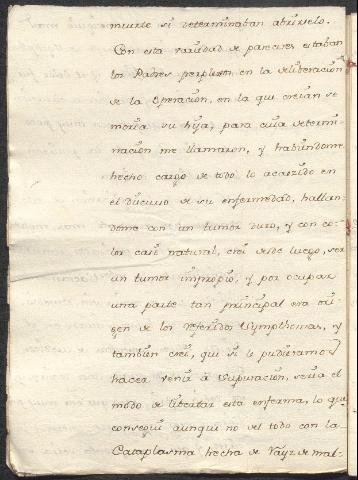 muerte si determinaban abrirselo.
Con esta variedad de pareceres estaban
los Padres perplexos en la deliberación
de la Operación, en la que creían se
moriria su hija, para cuia determi-
nacion me llamaron, y habiendome
hecho cargo de todo lo acaecido en
el discurso de su enfermedad, hallan-
dome con un tumor duro, y con co-
lor casi natural, creí desde luego, ser
un tumor impropio, y por ocupar
una parte tan principal era ori-
gen de los referidos Symptomas, y
tambien creí, que si le pudieramos
hacer venir à Supuración, seria el
modo de libertar esta enferma, lo que
conseguí aunque no del todo con la
Cataplasma hecha de Rayz de mal-